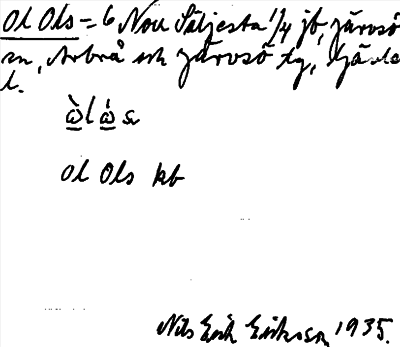 Ol Ols = 6 Nor Säljesta 1/4 jb, Järvsö
sn, Arbrå och Järvsö tg, Gävle
l.
ὼlώs
Ol Ols kb
Nils Erik Eriksson 1935.